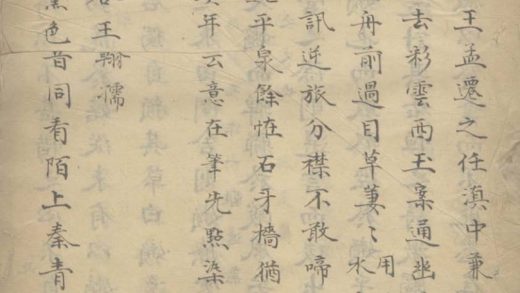 王孟遷之任滇中兼
去彩雲西玉案通幽
舟前過目草萋〻
用
水
訊逆旅分襟不敢啼
平泉餘恠石牙檣猶
年云意在筆先點染
王翰孺
色首同看陌上秦青